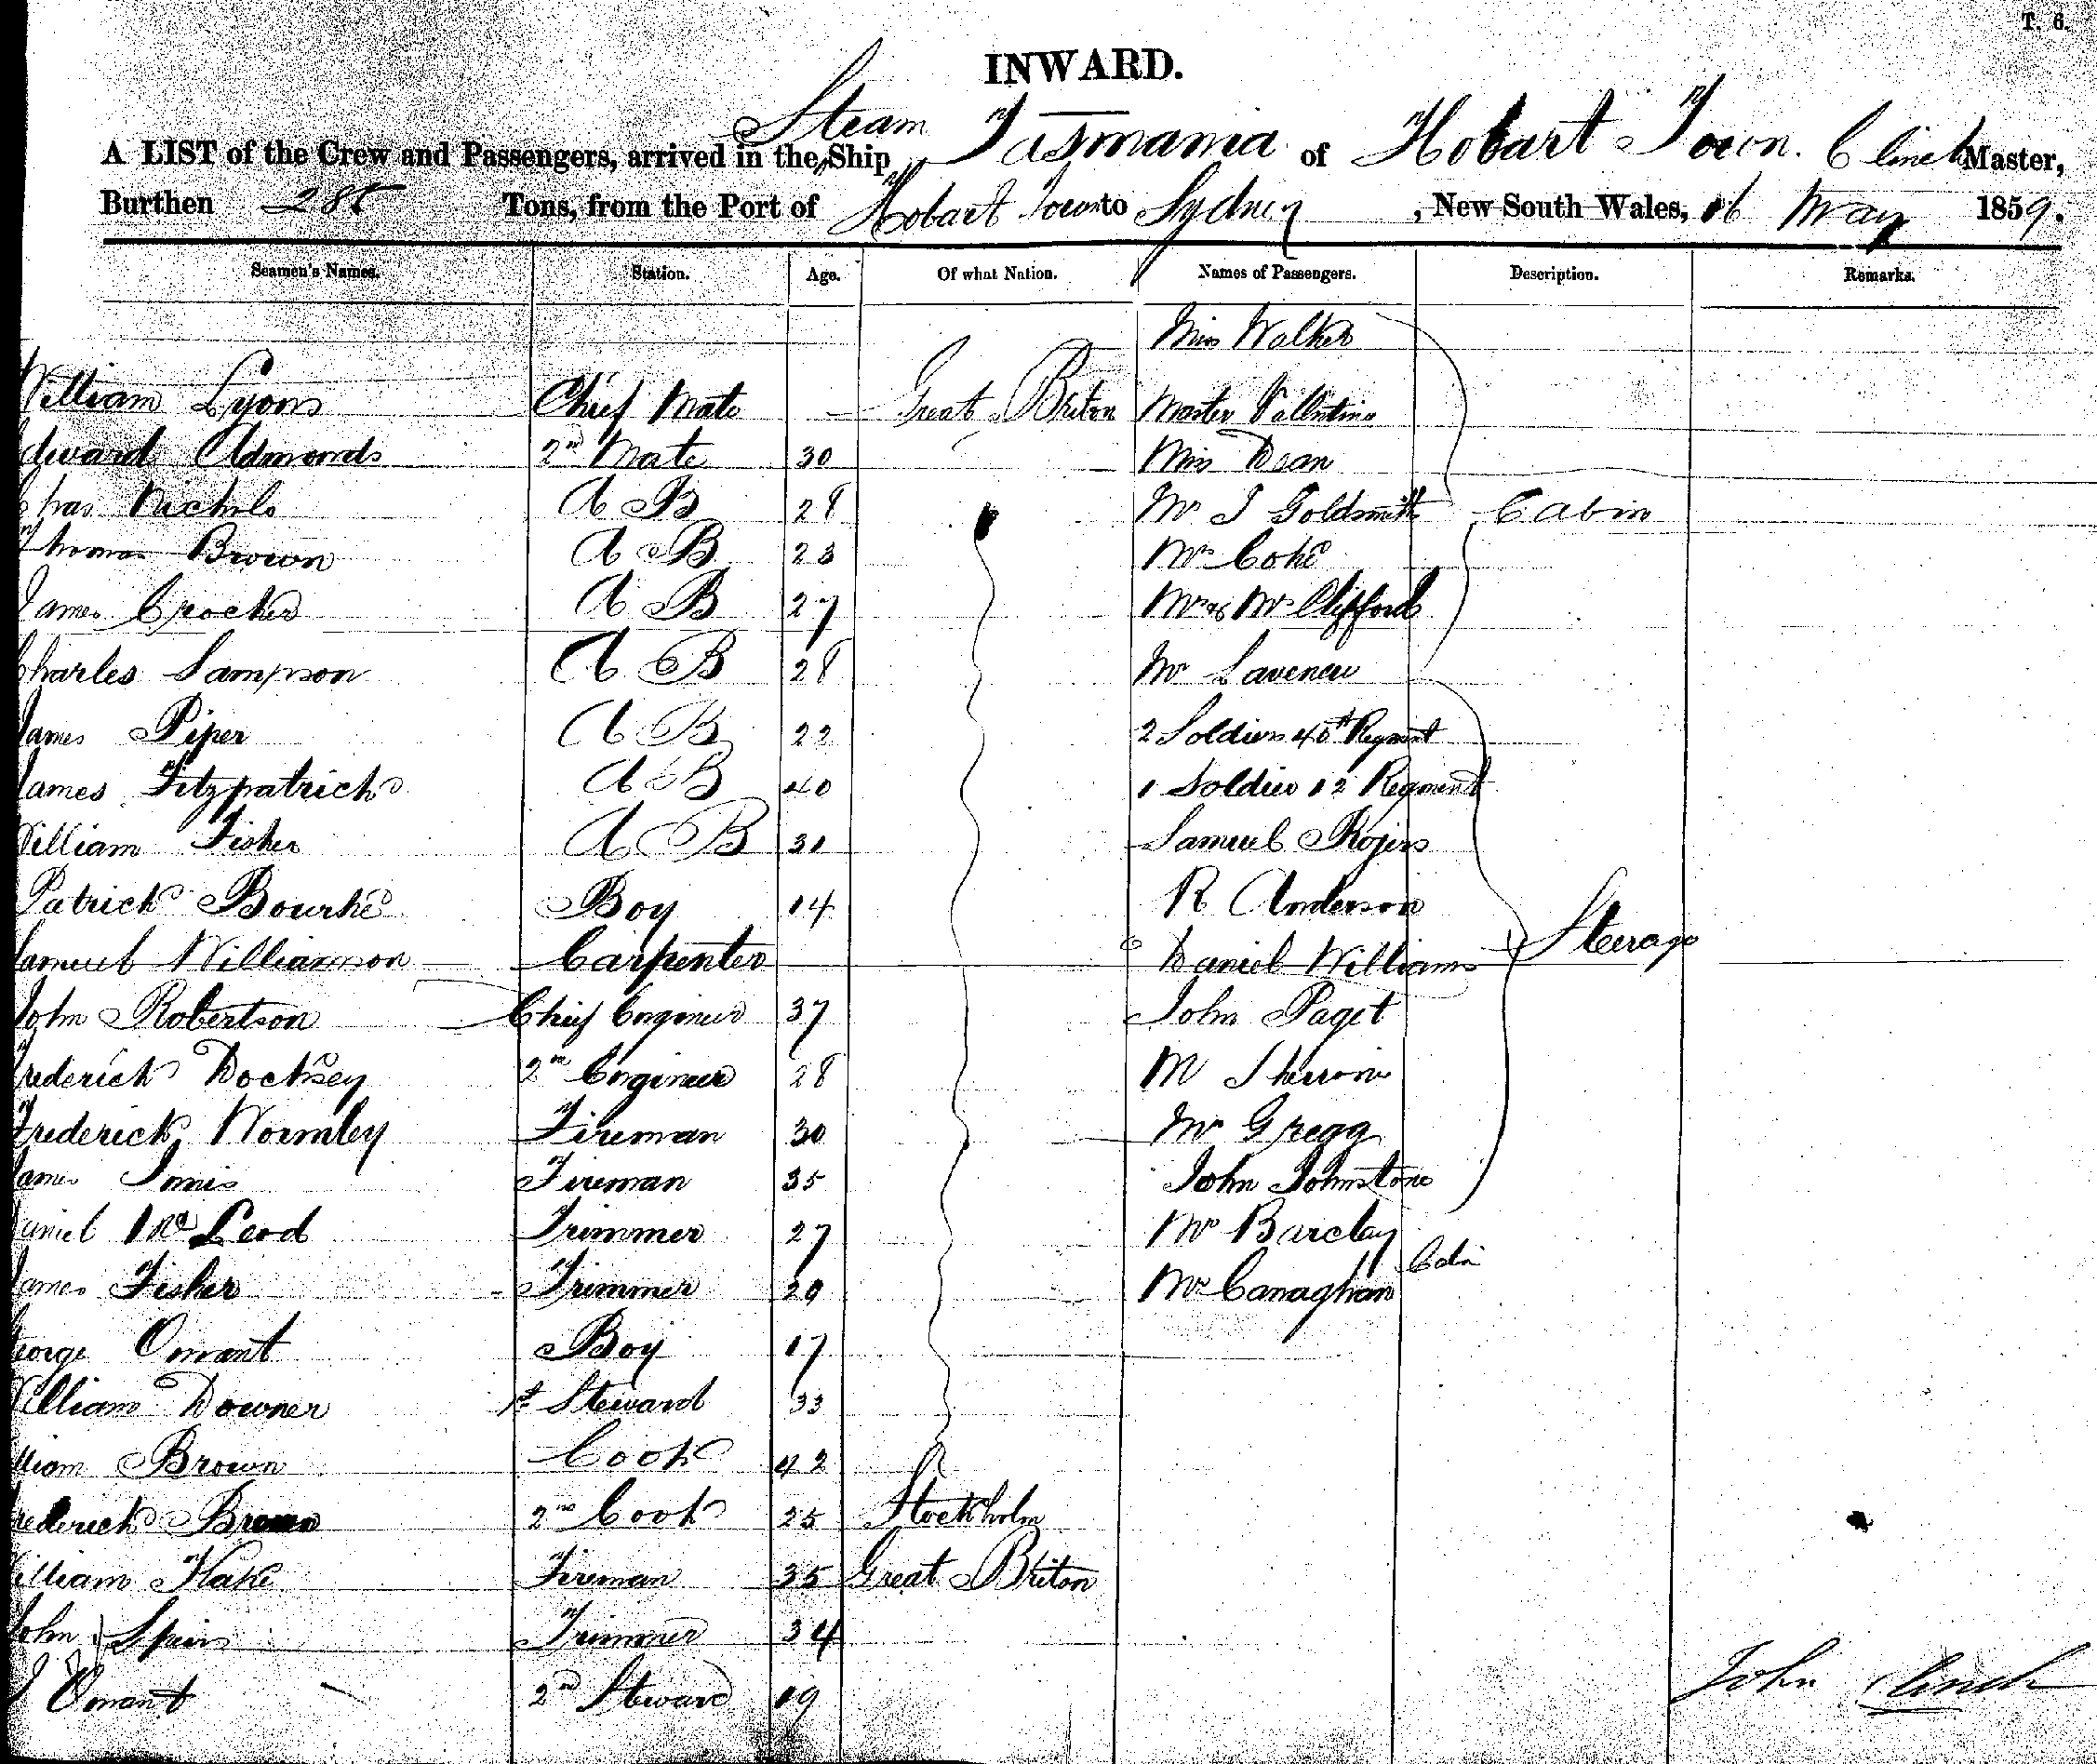 T. 6.
INWARD.
A LIST of the Crew and Passengers, arrived in the Steam Ship Tasmania of Hobart Town. Clinch Master,
Burthen 285 Tons, from the Port of Hobart Town to Sydney, New South Wales, 16 May 1859.
Seamen's Names. Station. Age. Of what Nation. Names of Passengers. Description. Remarks.
Miss Walker
William Lyons Chief Mate Great Briton Master Vallentine
Edward Edmonds 2nd Mate 30 Miss Dean
Chas Nichols A B 28 Mr I Goldsmith Cabin
Thomas Brown A B 23 Mr Coke
James Crocker A B 27 Mr & Mrs Clifford
Charles Sampson A B 28 Mr Laveneu
James Piper A B 22 2 Soldiers 40th Regment
James Fitzpatrick A B 40 1 Soldier 12 Regment
William Fisher A B 31 Samuel Rogers
Patrick Bourke Boy 14 R Anderson
Samuel Williamson Carpenter Daniel Williams Steerage
John Robertson Chief Engineer 37 John Paget
Frederick Docksey 2nd Engineer 28 M Sherrin
Frederick Wormley Fireman 30 Mr Gregg
James Innis Fireman 35 John Johnstone
Daniel McLeod Trimmer 27 Mr Barclay
James Fisher Trimmer 29 Mr Canaghan Cabin
George Omant Boy 17
William Downer 1st Steward 33
William Brown Cook 42
Frederick Brown 2nd Cook 25 Stockholm
William Flake Fireman 35 Great Briton
John Speirs Trimmer 34
J Omant 2nd Steward 19
John Clinch